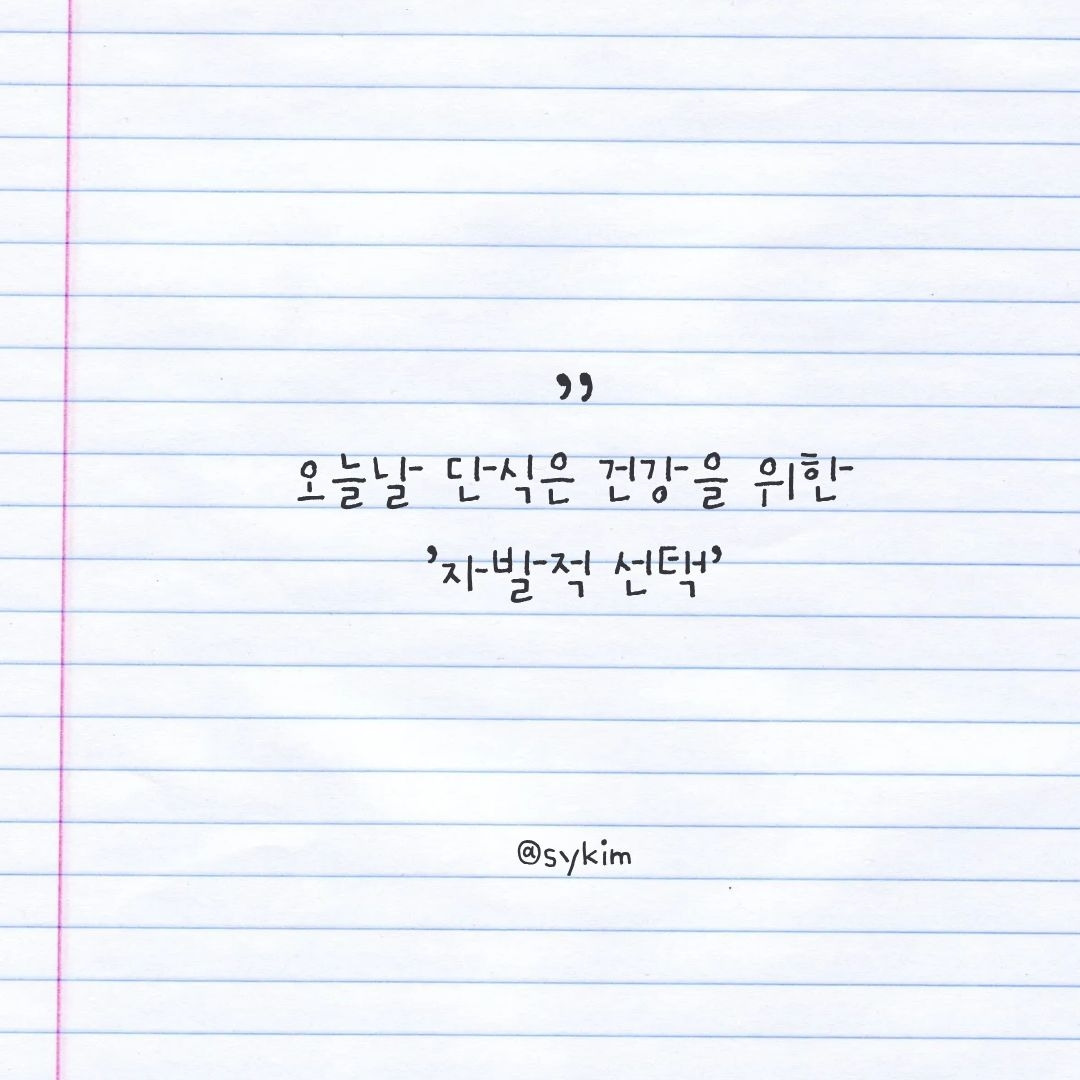 ”
오늘날 단식은 건강을 위한
’자발적 선택’
@sykim